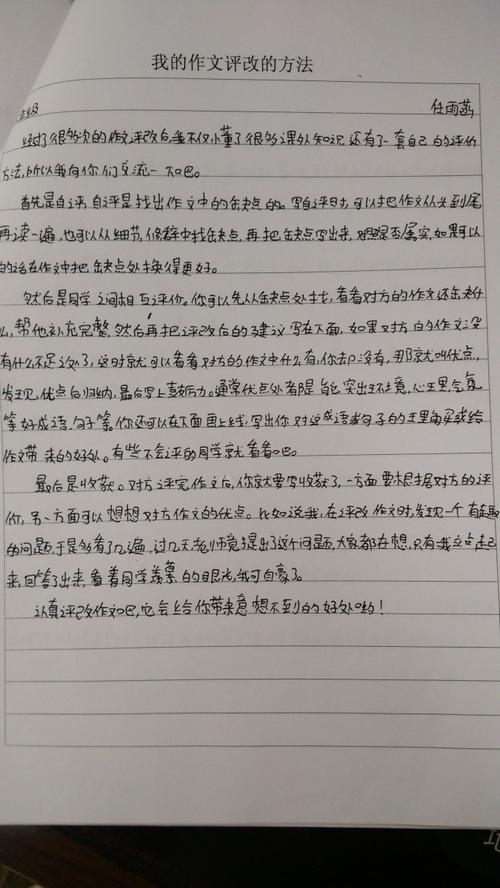 我的作文评改的方法
级 任雨菡
经过了很多次的作文评改后,我不仅懂了很多课外知识,还有了一套自己的评价
方法,所以我向你们交流一下吧。
首先是自评,自评是找出作文中的缺点的。写自评时,可以把作文从头到尾
再读一遍,也可以从细节,修辞中找缺点,再把缺点写出来,观察否属实,如果可以
的话在作文中把缺点处换得更好。
然后是同学之间相互评价。你可以先从缺点处找,看看对方的作文还缺什
么,帮他补充完整,然后再把评改后的建议写在下面,如果对方的作文没
有什么不足之处了,这时就可以看看对方的作文中什么有,你却没有,那就叫优点。
发现优点后归纳,最后写上鼓励。通常优点处都是能突出环境,心里
等好成语,句子等。你还可以在下面画上线,写出你对这成语或句子的
作文带来的好处。有些不会评的同学就看看吧。
最后是收获。对方评完作文后,你就要写收获了,一方面要根据对方的评
价,另一方面可以想想对方作文的优点。比如说我,在评改作文时,发现一个有趣
的问题,于是多看了几遍,过几天老师竟提出了这个问题,大家都在想,只有我立
来,回答了出来,看着同学羡慕的眼光,我可自豪了。
认真评改作文吧,它会给你带来意想不到的好处哟!